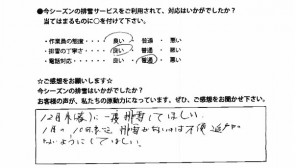 ●今シーズンの排雪サービスをご利用されて、対応はいかがでしたか?
当てはまるものに○を付けて下さい。
・作業員の態度・・・・ 良い ・ 普通 ・ 悪い
・排雪の丁寧さ・・・・ 良い ・ 普通 ・ 悪い
・電話対応・・・・・・ 良い ・ 普通 ・ 悪い
☆ご感想をお願いします☆
今シーズンの排雪はいかがでしたか?
お客様の声が、私たちの原動力になっています。ぜひ、ご感想をお聞かせ下さい。
12月末(暮)に一度排雪してほしい.
1月の10日過 排雪がないのは不便
ないようにしてほしい.